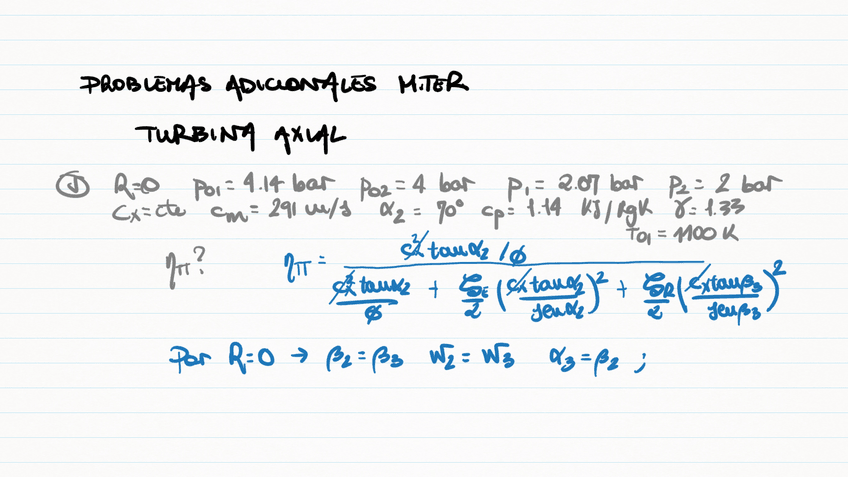 PROBLEMAS ADICIONALES M.TER
TURBINA AXIAL
① R=0 p01 = 4.14 bar p02 = 4 bar p1 = 2.07 bar p2 = 2 bar
cx=cte cm = 291 m/s α2 = 70° cp = 1.14 KJ/KgK γ = 1.33
T01 = 1100 K
ηTT? ηTT = (cx² tanα2 / ϕ) / (cx² tanα2 / ϕ + ξE/2 (cx tanα2 / senα2)² + ξR/2 (cx tanβ3 / senβ3)²)
Por R=0 → β2 = β3 W2 = W3 α3 = β2 ;